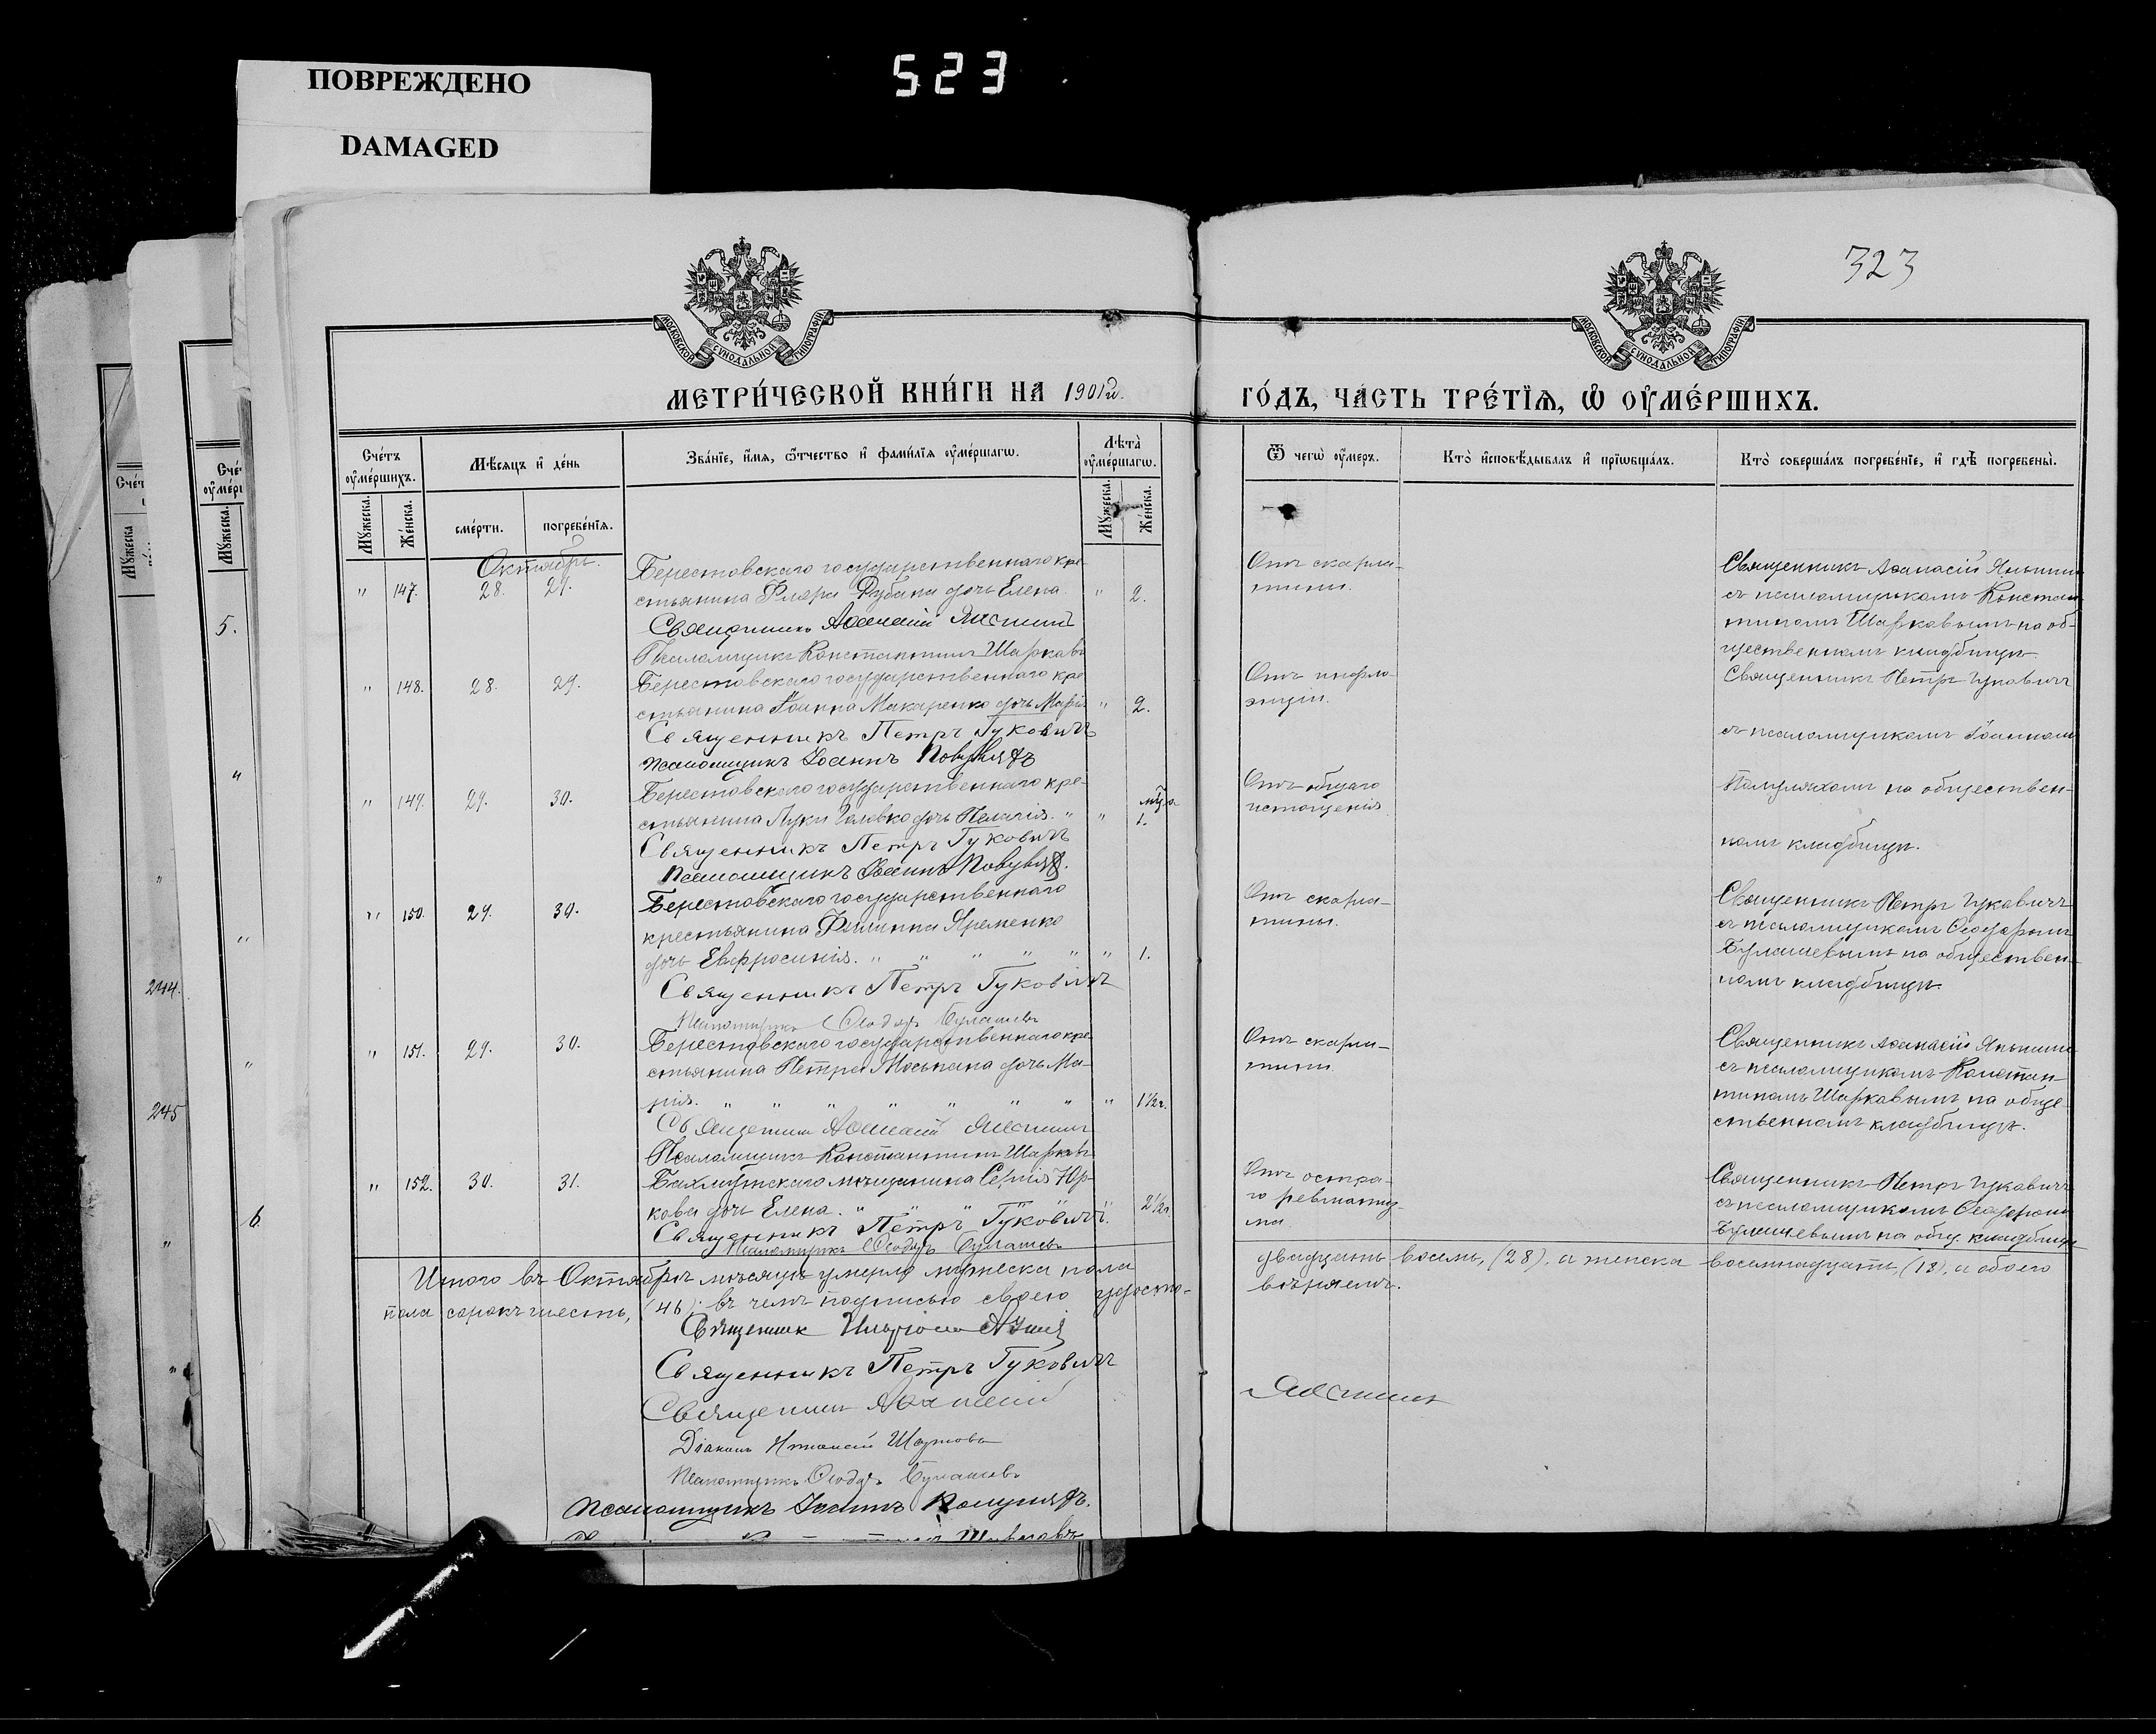 523
ПОВРЕЖДЕНО
DAMAGED
323
МОСКОВСКОЙ СУНОДАЛЬНОЙ ТИПОГРАФІИ
МОСКОВСКОЙ СУНОДАЛЬНОЙ ТИПОГРАФІИ
МЕТРИ́ЧЕСКОЙ КНИ́ГИ НА 1901 ГО́ДЪ, ЧА́СТЬ ТРЕ́ТЇѦ, Ѽ ОУ҆МЕ́РШИХЪ.
Сче́тъ оу҆ме́ршихъ.
Мѣ́сяцъ и҆ де́нь
Зва́нїе, и҆́мѧ, ѻ҆́тчество и҆ фами́лїѧ оу҆ме́ршагѡ.
Лѣта̀ оу҆ме́ршагѡ.
Ѿ чегѡ̀ оу҆́меръ.
Кто̀ и҆сповѣ́дывалъ и҆ прїѡбща́лъ.
Кто̀ соверша́лъ погребе́нїе, и҆ гдѣ̀ погребены̀.
Мꙋ́жеска. Же́нска. сме́рти. погребе́нїѧ. Мꙋ́жеска. Же́нска.
Октябрь.
" 147. 28. 29.
Берестовского государственнаго кре-
стьянина дочь Елена. " 2.
Священникъ Аѳанасій
Псаломщикъ Константинъ Шаркавъ
Отъ скарла-
тины.
Священникъ Аѳанасій
съ псаломщикомъ Констан-
тиномъ Шаркавымъ на об-
щественномъ кладбищѣ.
" 148. 28. 29.
Берестовского государственнаго кре-
стьянина Іоанна Макаренко дочь Марія " 2.
Священникъ Петръ Гуковичъ
Псаломщикъ Іоаннъ
Отъ инфлю-
энціи.
Священникъ Петръ Гуковичъ
съ псаломщикомъ Іоанномъ
на обществен-
номъ кладбищѣ.
" 149. 29. 30.
Берестовского государственнаго кре-
стьянина Луки Головко дочь Пелагія. " " 1.
Священникъ Петръ Гуковичъ
Псаломщикъ Іоаннъ
Отъ общаго
истощенія
" 150. 29. 30.
Берестовского государственнаго
крестьянина Филиппа Яременко
дочь Евфросинія. " " " " " " 1.
Священникъ Петръ Гуковичъ
Псаломщикъ Ѳеодоръ Булашевъ
Отъ скарла-
тины.
Священникъ Петръ Гуковичъ
съ псаломщикомъ Ѳеодоромъ
Булашевымъ на обществен-
номъ кладбищѣ.
" 151. 29. 30.
Берестовского государственнаго кре-
стьянина Петра Моськана дочь Ма-
рія. " " " " " " " " 1½ г.
Священникъ Аѳанасій
Псаломщикъ Константинъ Шаркавъ
Отъ скарла-
тины.
Священникъ Аѳанасій
съ псаломщикомъ Констан-
тиномъ Шаркавымъ на обще-
ственномъ кладбищѣ.
" 152. 30. 31.
Бахмутскаго мѣщанина Сергія Юр-
кова дочь Елена. " " " " " 2½ г.
Священникъ Петръ Гуковичъ.
Псаломщикъ Ѳеодоръ Булашевъ
Отъ остра-
го ревматиз-
ма.
Священникъ Петръ Гуковичъ
съ псаломщикомъ Ѳеодоромъ
Булашевымъ на общ. кладбищѣ
Итого въ Октябрѣ мѣсяцѣ умерло мужеска пола двадцать восемь, (28), а женска восемнадцать, (18), а обоего
пола сорокъ шесть, (46); въ чемъ подписью своею удосто- вѣряемъ.
Священникъ
Священникъ Петръ Гуковичъ
Священникъ Аѳанасій
Діаконъ
Псаломщикъ Ѳеодоръ Булашевъ
Псаломщикъ Іоаннъ
5.
"
244.
245
6